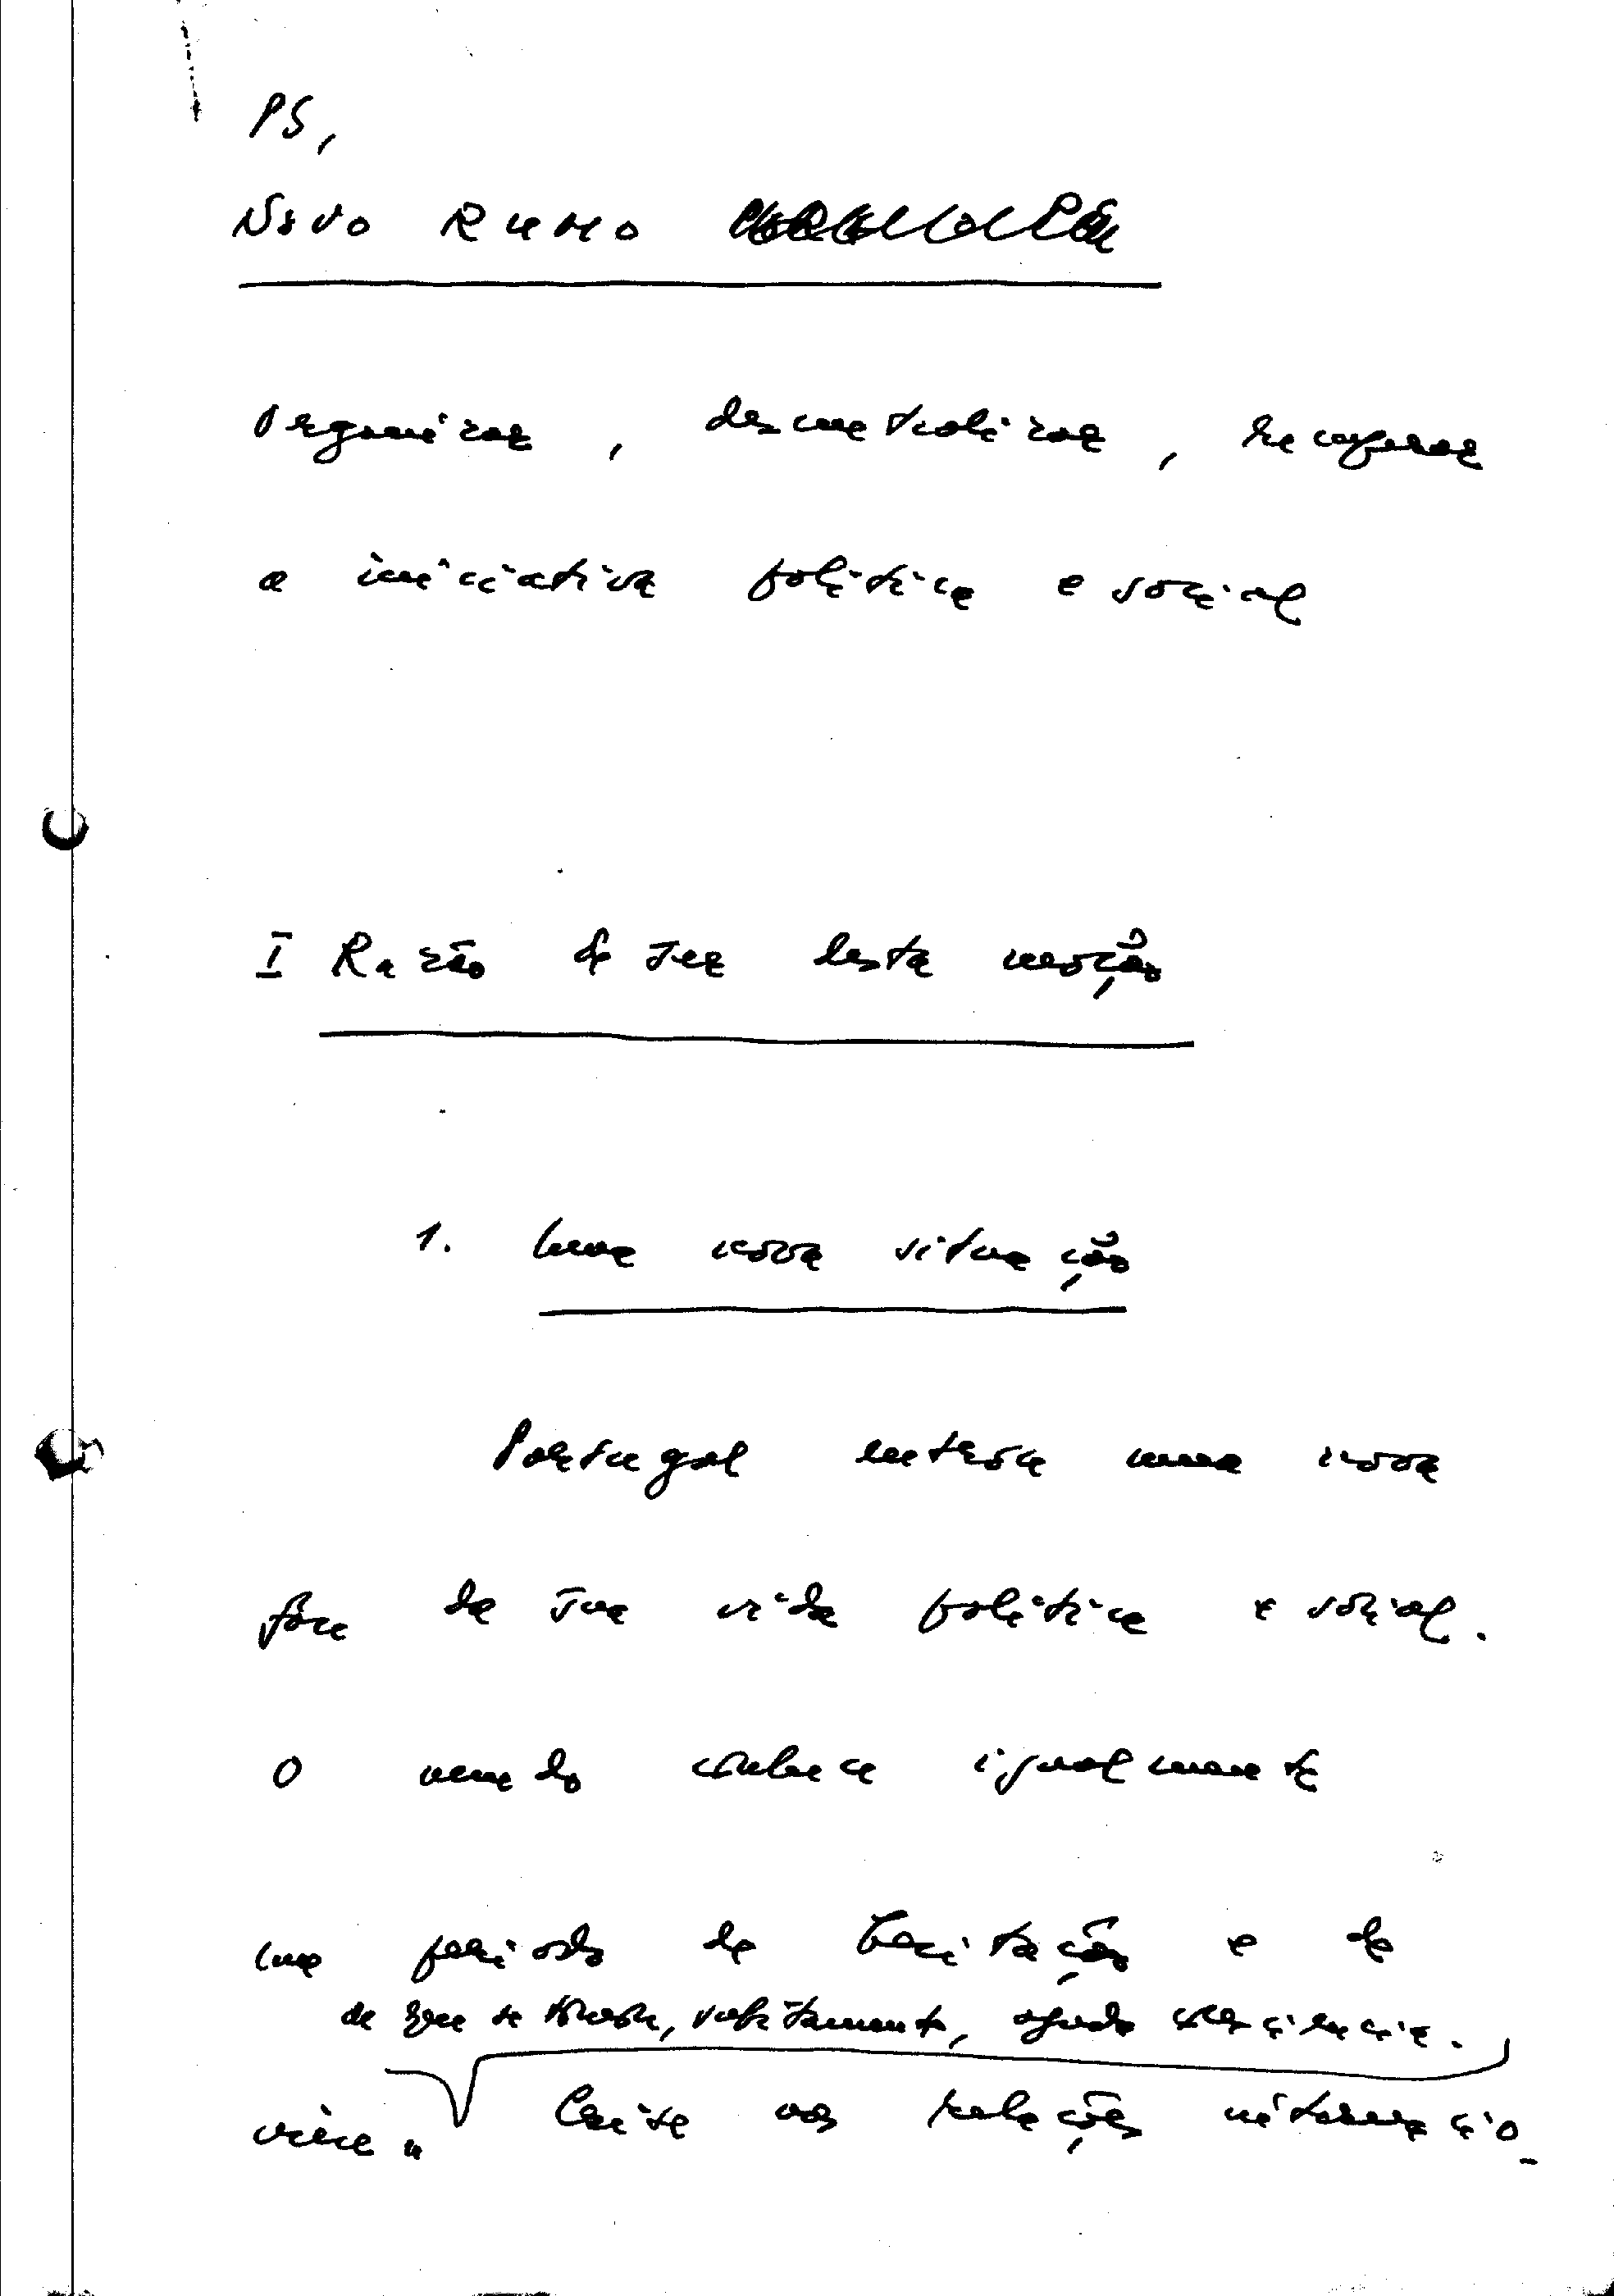 PS,
Novo Rumo
Organizar, descentralizar, recuperar
a iniciativa política e social
I Razão de ser desta moção
1. Uma nova situação
Portugal entrou numa nova
fase da sua vida política e social.
O mundo conhece igualmente
um período de e de
de que se toma, subitamente, aguda consciência.
crise Crise nas relações internacio-